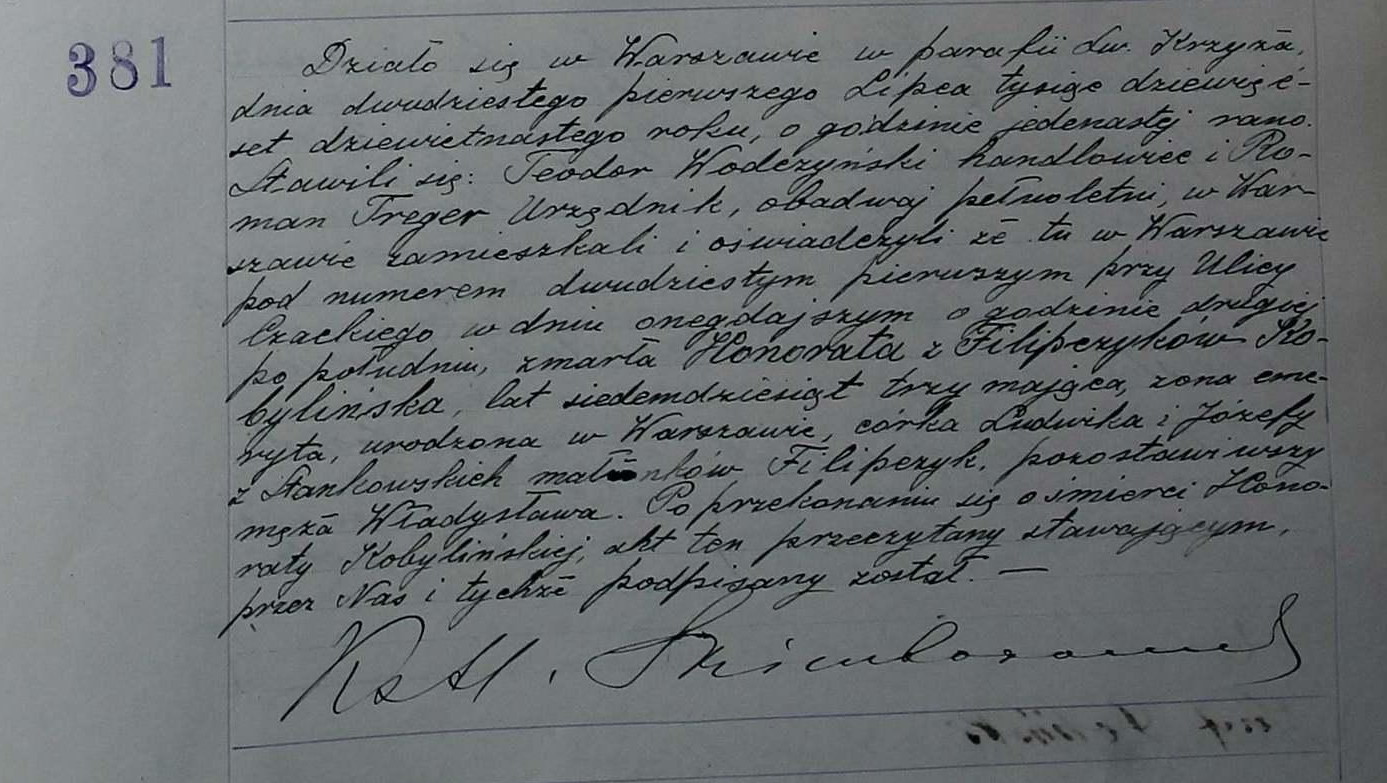 381
Działo się w Warszawie w parafii Św. Krzyża,
dnia dwudziestego pierwszego Lipca tysiąc dziewięć-
set dziewietnastego roku, o godzinie jedenastej rano.
Stawili się: Teodor Wodczyński handlowiec i Ro-
man Treger Urzędnik, obadwaj pełnoletni, w War-
szawie zamieszkali i oświadczyli że tu w Warszawie
pod numerem dwudziestym pierwszym przy Ulicy
Czackiego w dniu onegdajszym o godzinie drugiej
po południu, zmarła Honorata z Filipczyków Ko-
bylińska, lat siedemdziesiąt trzy mająca, żona eme-
ryta, urodzona w Warszawie, córka Ludwika i Józefy
z Stankowskich małżonków Filipczyk, pozostawiwszy
męża Władysława. Po przekonaniu się o śmierci Hono-
raty Kobylińskiej, akt ten przeczytany stawającym,
przez Nas i tychże podpisany został. —